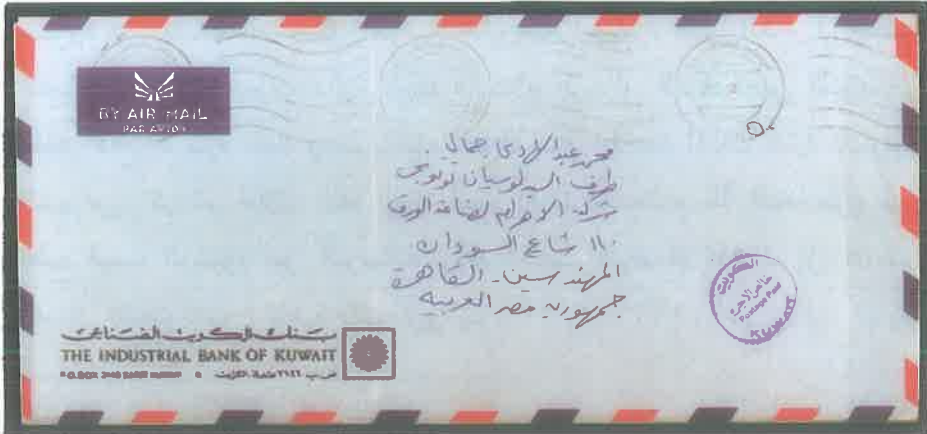 BY AIR MAIL
PAR AVION
محمد عبد الهادي جمالي
طرف السيد لوسيان
شركة الاهرام لصناعة الورق
١١٠ شارع السودان
المهندسين - القاهرة
جمهورية مصر العربية
الكويت
خالص الاجرة
Postage Paid
KUWAIT
بنك الكويت الصناعي
THE INDUSTRIAL BANK OF KUWAIT
P.O.BOX 3146 SAFAT KUWAIT
ص.ب ٣١٤٦ صفاة الكويت